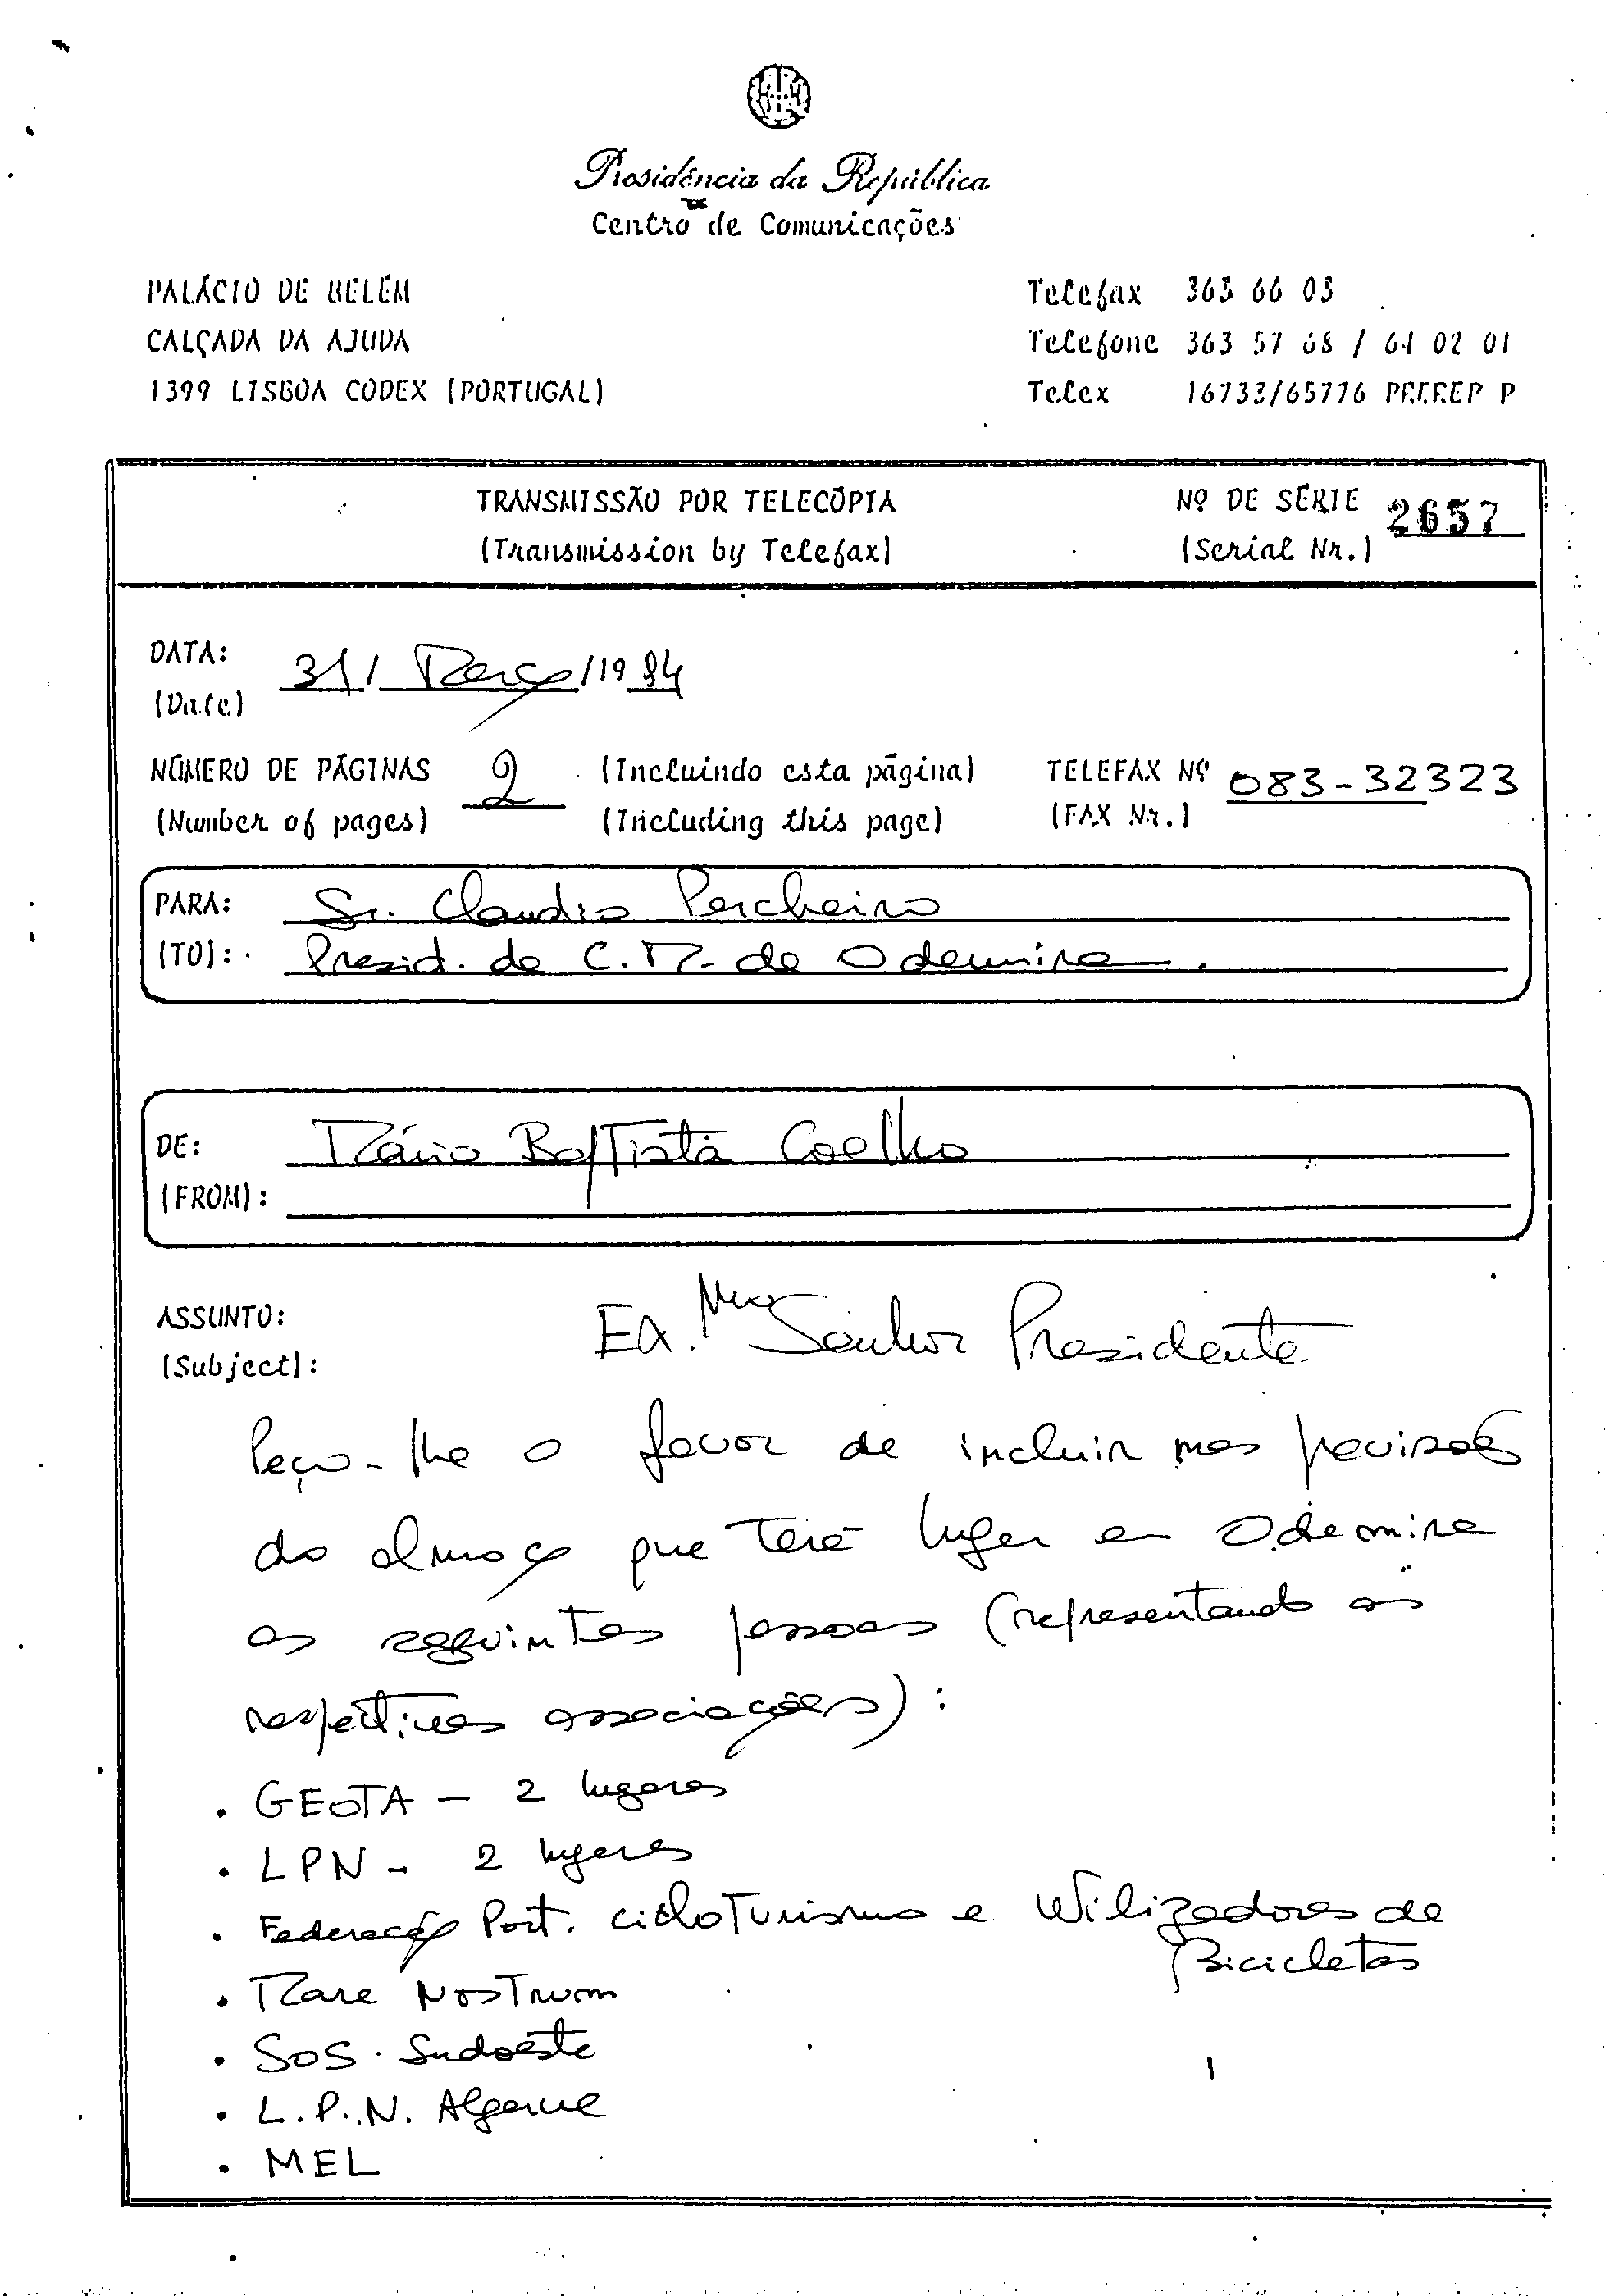 Presidência da República
Centro de Comunicações
PALÁCIO DE BELÉM
CALÇADA DA AJUDA
1399 LISBOA CODEX (PORTUGAL)
Telefax 363 66 03
Telefone 363 57 68 / 64 02 01
Telex 16733/65776 P
TRANSMISSÃO POR TELECÓPIA
(Transmission by Telefax)
Nº DE SÉRIE 2657
(Serial Nr.)
DATA: 31/ Março/1994
(Date)
NÚMERO DE PÁGINAS 2 (Incluindo esta página) TELEFAX Nº 083-32323
(Number of pages) (Including this page) (FAX Nr.)
PARA: Sr. Claudio Percheiro
(TO): Presid. da C.M. de Odemira.
DE: Mário Baptista Coelho
(FROM):
ASSUNTO: Ex.mo Senhor Presidente
(Subject):
Peço-lhe o favor de incluir nas previsões
do almoço que terá lugar em Odemira
as seguintes pessoas (representando as
respectivas associações):
. GEOTA - 2 lugares
. LPN - 2 lugares
. Federação Port. cicloTurismo e Utilizadores de
Bicicletas
. Mare NosTrum
. SOS. Sudoeste
. L.P.N. Algarve
. MEL